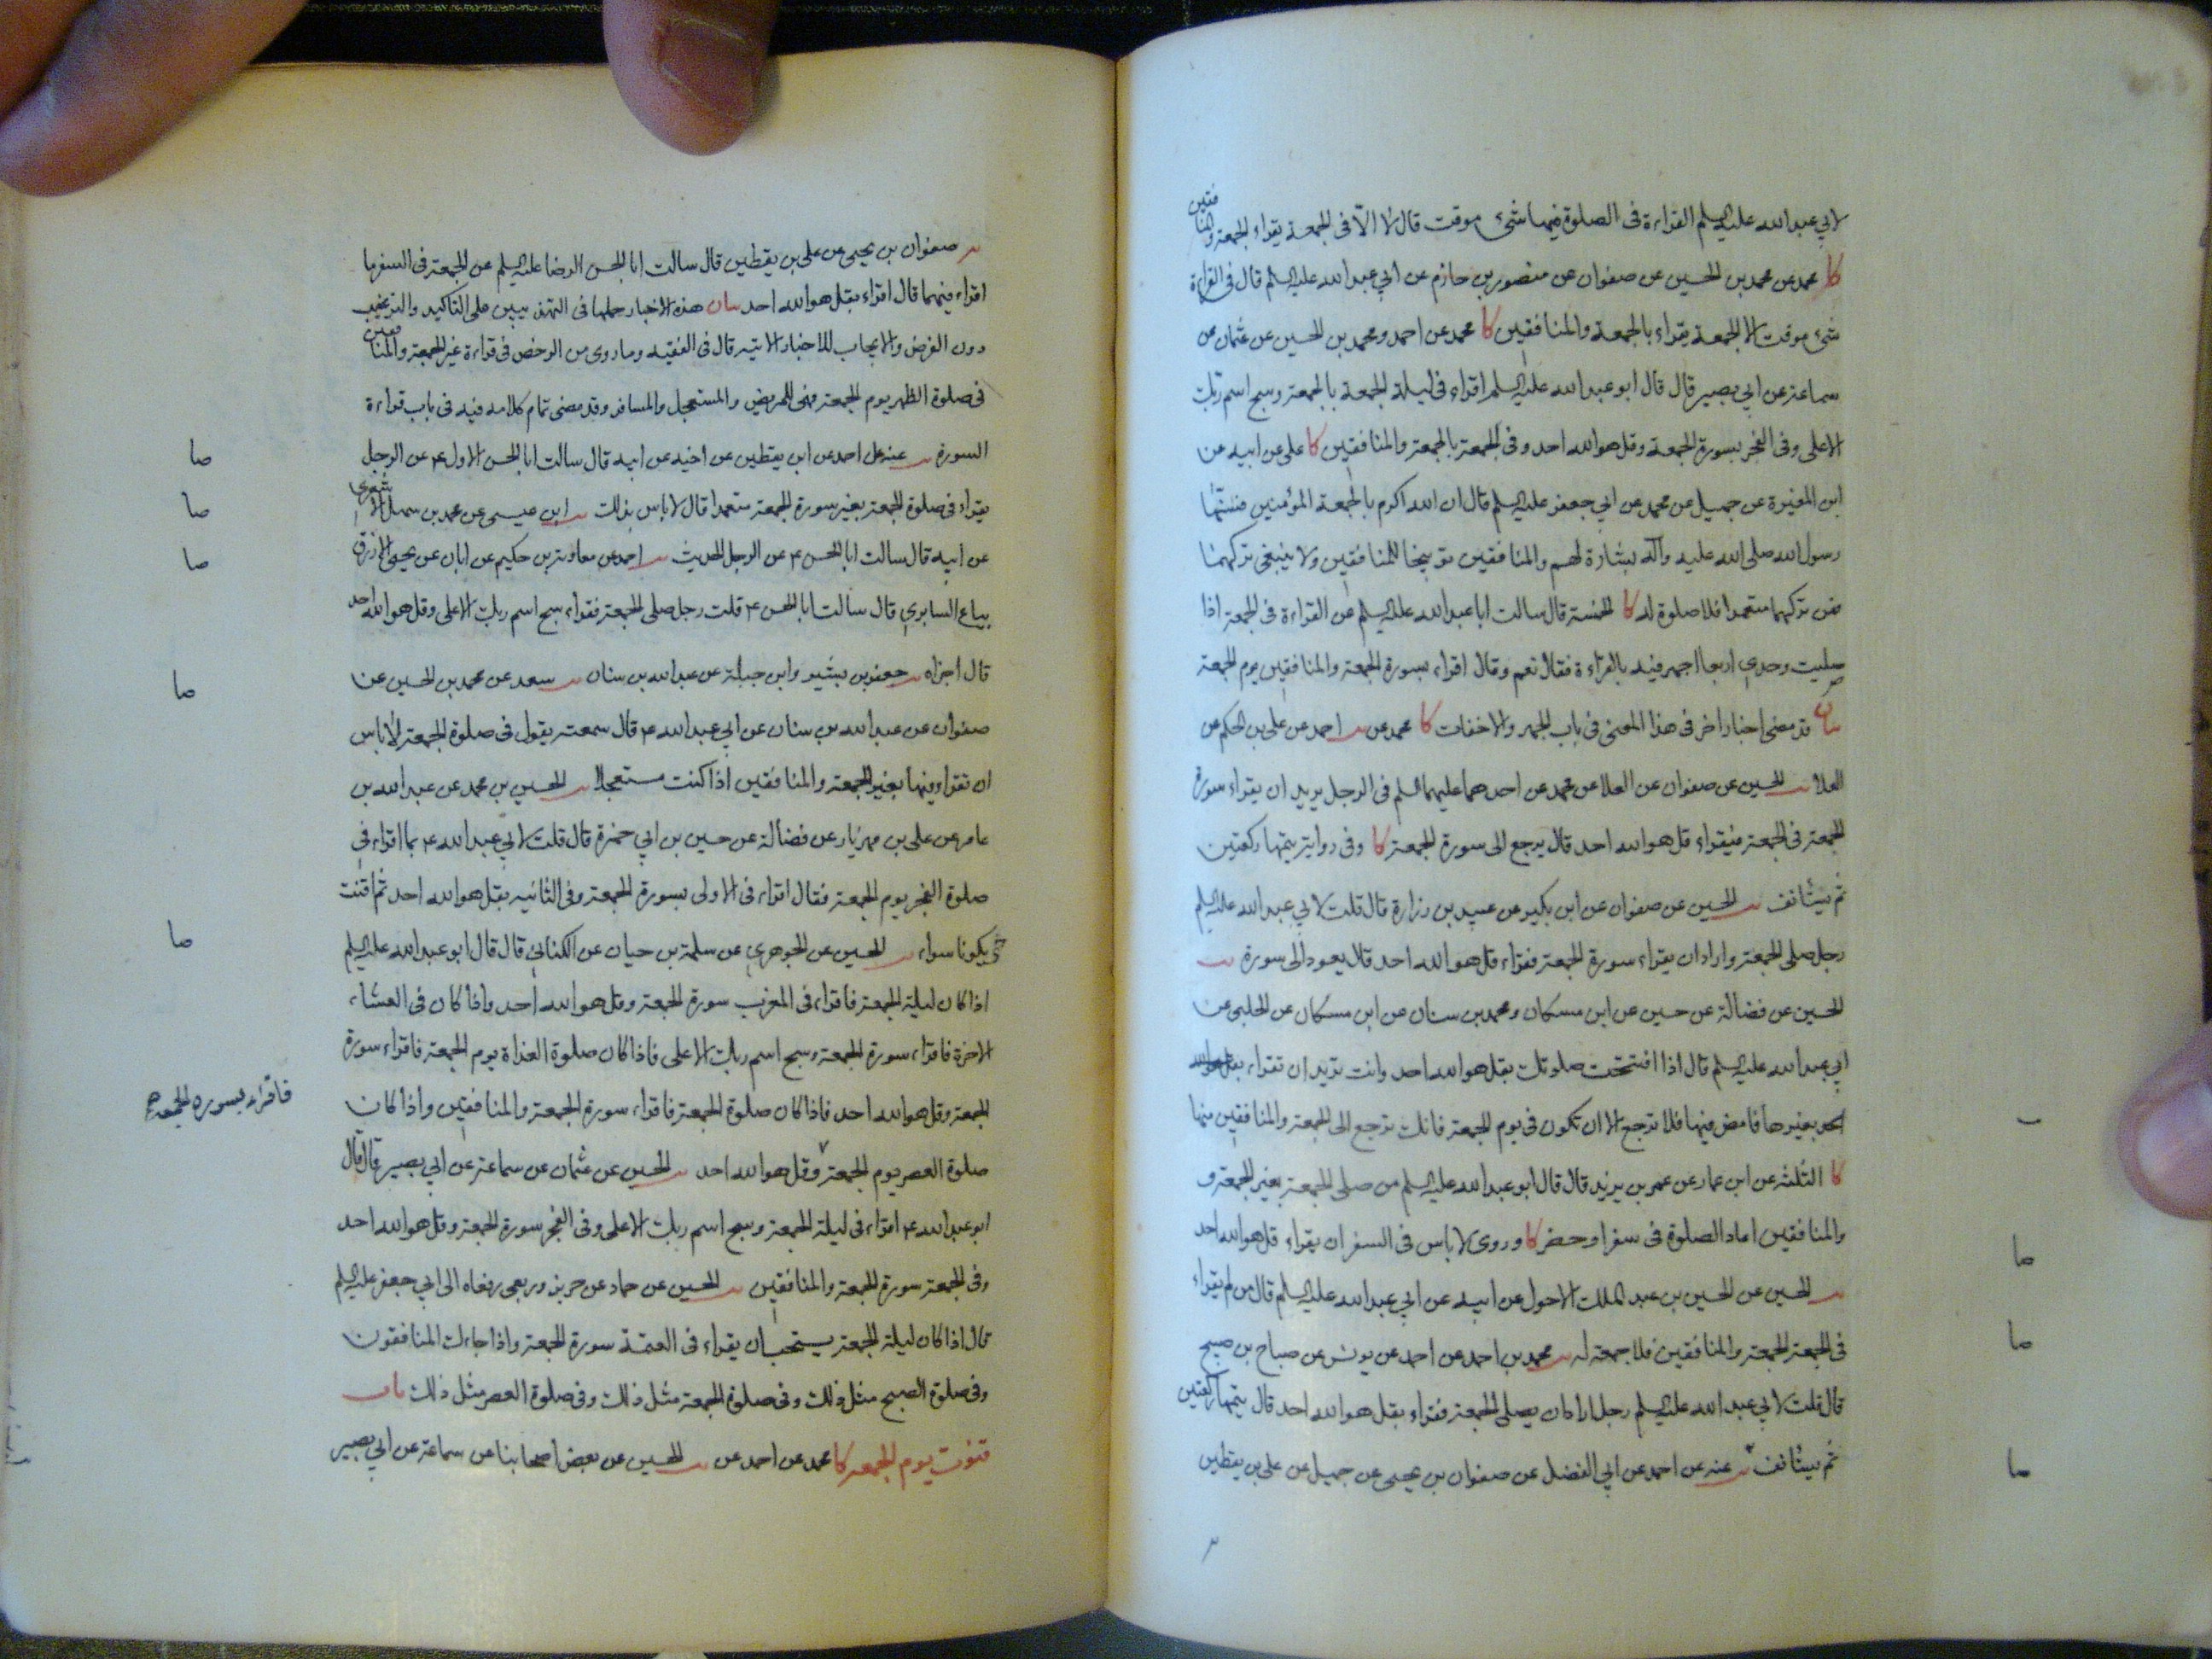 لابي عبد الله عليه السلم القراءة فى الصلوة فيها شئ موقت قال لا الا فى الجمعة يقراء الجمعة والمنافقين
كا محمد عن محمد بن الحسين عن صفوان عن منصور بن حازم عن ابي عبد الله عليه السلم قال فى القراءة
شئ موقت الا الجمعة يقراء بالجمعة والمنافقين كا محمد عن احمد ومحمد بن الحسين عن عثمان عن
سماعة عن ابي بصير قال قال ابو عبد الله عليه السلم اقراء فى ليلة الجمعة بالجمعة وسبح اسم ربك
الاعلى وفى الفجر بسورة الجمعة وقل هو الله احد وفى الجمعة بالجمعة والمنافقين كا على عن ابيه عن
ابن المغيرة عن جميل عن محمد عن ابي جعفر عليه السلم قال ان الله اكرم بالجمعة المؤمنين فسنّها
رسول الله صلى الله عليه وآله بشارة لهم والمنافقين توبيخا للمنافقين ولا ينبغى تركهما
فمن تركهما متعمدا فلا صلوة له كا الخمسة قال سالت ابا عبد الله عليه السلم عن القراءة فى الجمعة اذا
صليت وحدي اربعا اجهر فيه بالقراءة فقال نعم وقال اقراء بسورة الجمعة والمنافقين يوم الجمعة
بيان قد مضى اخبار اخر فى هذا المعنى فى باب الجهر والاخفات كا محمد عن يب احمد عن على بن الحكم عن
العلا يب الحسين عن صفوان عن العلا عن محمد عن احدهما عليهما السلم فى الرجل يريد ان يقراء سورة
الجمعة فى الجمعة فيقراء قل هو الله احد قال يرجع الى سورة الجمعة كا وفى رواية يتمها ركعتين
ثم يستانف يب الحسين عن صفوان عن ابن بكير عن عبيد بن زرارة قال قلت لابي عبد الله عليه السلم
رجل صلى الجمعة واراد ان يقراء سورة الجمعة فقراء قل هو الله احد قال يعود الى سورة يب
الحسين عن فضالة عن حسين عن ابن مسكان ومحمد بن سنان عن ابن مسكان عن الحلبى عن
ابي عبد الله عليه السلم قال اذا افتتحت صلوتك بقل هو الله احد وانت تريد ان تقراء
بغيرها فامض فيها فلا ترجع الا ان تكون فى يوم الجمعة فانك ترجع الى الجمعة والمنافقين منها
كا الثلثة عن ابن عمار عن عمر بن يزيد قال قال ابو عبد الله عليه السلم من صلى الجمعة بغير الجمعة و
والمنافقين اعاد الصلوة فى سفر او حضر كا وروى لا باس فى السفر ان يقراء قل هو الله احد
صا
يب الحسين عن الحسين بن عبد الملك الاحول عن ابيه عن ابي عبد الله عليه السلم قال من لم يقراء
فى الجمعة الجمعة والمنافقين فلا جمعة له يب محمد بن احمد عن احمد عن يونس عن صباح بن صبيح
صا
قال قلت لابي عبد الله عليه السلم رجل اراد ان يصلى الجمعة فقراء بقل هو الله احد قال يتمها ركعتين
ثم يستانف يب عنه عن احمد عن ابي الفضل عن صفوان بن يحيى عن جميل عن على بن يقطين
صا
يب صفوان بن يحيى عن على بن يقطين قال سالت ابا الحسن الرضا عليه السلم عن الجمعة فى السفر ما
اقراء فيهما قال اقراء بقل هو الله احد بيان هذه الاخبار حملها فى التهذيبين على التاكيد والترغيب
دون الفرض والايجاب للاخبار الاتية قال فى الفقيه وما روى من الرخص فى قراءة غير الجمعة والمنافقين
فى صلوة الظهر يوم الجمعة فهى للمريض والمستعجل والمسافر وقد مضى تمام كلامه فيه فى باب قراءة
السورة يب عنه عن احمد عن ابن يقطين عن اخيه عن ابيه قال سالت ابا الحسن الاول ع عن الرجل
صا
يقراء فى صلوة الجمعة بغير سورة الجمعة متعمدا قال لا باس بذلك يب ابن عيسى عن محمد بن سهل الاشعرى
صا
عن ابيه قال سالت ابا الحسن ع عن الرجل الحديث يب احمد عن معاوية بن حكيم عن ابان عن يحيى الازرق
صا
بياع السابري قال سالت ابا الحسن ع قلت رجل صلى الجمعة فقراء سبح اسم ربك الاعلى وقل هو الله احد
قال اجزاه يب جعفر بن بشير وابن جبلة عن عبد الله بن سنان يب سعد عن محمد بن الحسين عن
صا
صفوان عن عبد الله بن سنان عن ابي عبد الله ع قال سمعته يقول فى صلوة الجمعة لا باس
ان تقراء فيها بغير الجمعة والمنافقين اذا كنت مستعجلا يب الحسين بن محمد عن عبد الله بن
عامر عن على بن مهزيار عن فضالة عن حسين بن ابي حمزة قال قلت لابي عبد الله ع بما اقراء فى
صلوة الفجر يوم الجمعة فقال اقراء فى الاولى بسورة الجمعة وفى الثانيه بقل هو الله احد ثم اقنت
حتى يكونا سواء يب الحسين عن الجوهرى عن سلمة بن حيان عن الكنانى قال قال ابو عبد الله عليه السلم
صا
اذا كان ليلة الجمعة فاقراء فى المغرب سورة الجمعة وقل هو الله احد واذا كان فى العشاء
الاخرة فاقراء سورة الجمعة وسبح اسم ربك الاعلى فاذا كان صلوة الغداة يوم الجمعة فاقراء سورة
الجمعة وقل هو الله احد فاذا كان صلوة الجمعة فاقراء سورة الجمعة والمنافقين واذا كان
فاقراء بسوره الجمعه
صلوة العصر يوم الجمعة وقل هو الله احد يب الحسين عن عثمان عن سماعة عن ابي بصير قال قال
ابو عبد الله ع اقراء فى ليلة الجمعة وسبح اسم ربك الاعلى وفى الفجر سورة الجمعة وقل هو الله احد
وفى الجمعة سورة الجمعة والمنافقين يب الحسين عن حماد عن حريز وربعى رفعاه الى ابي جعفر عليه السلم
قال اذا كان ليلة الجمعة يستحب ان يقراء فى العتمة سورة الجمعة واذا جاءك المنافقون
وفى صلوة الصبح مثل ذلك وفى صلوة الجمعة مثل ذلك وفى صلوة العصر مثل ذلك باب
قنوت يوم الجمعه كا محمد عن احمد عن يب الحسين عن بعض اصحابنا عن سماعة عن ابي بصير